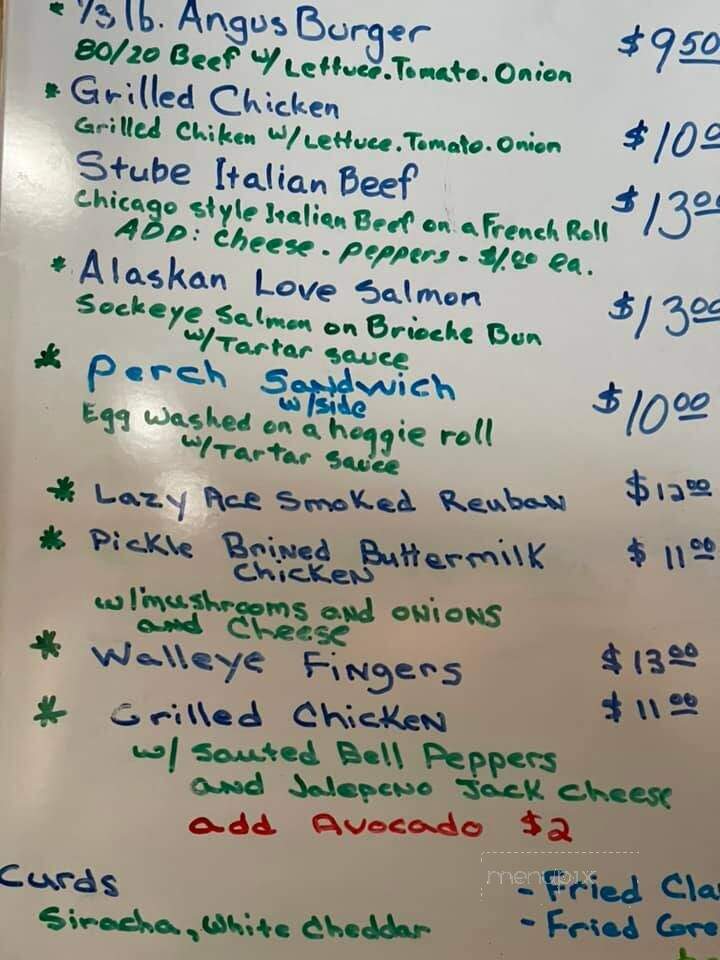 * 1/3 lb. Angus Burger $9.50
80/20 Beef w/ Lettuce. Tomato. Onion
* Grilled Chicken
Grilled Chiken w/ Lettuce. Tomato. Onion $10.0
Stube Italian Beef $13.00
Chicago style Italian Beef on a French Roll
ADD: cheese - peppers - $1.00 ea.
* Alaskan Love Salmon $13.00
Sockeye Salmon on Brioche Bun
w/ Tartar sauce
* Perch Sandwich $10.00
w/side
Egg washed on a hoggie roll
w/ Tartar sauce
* Lazy Ace Smoked Reuban $12.00
* Pickle Brined Buttermilk $11.00
Chicken
w/ mushrooms and onions
and Cheese
* Walleye Fingers $13.00
* Grilled Chicken $11.00
w/ Sauted Bell Peppers
and Jalepeno Jack cheese
add Avocado $2
Curds
Siracha, White Cheddar
menupix
- Fried Cla
- Fried Gre